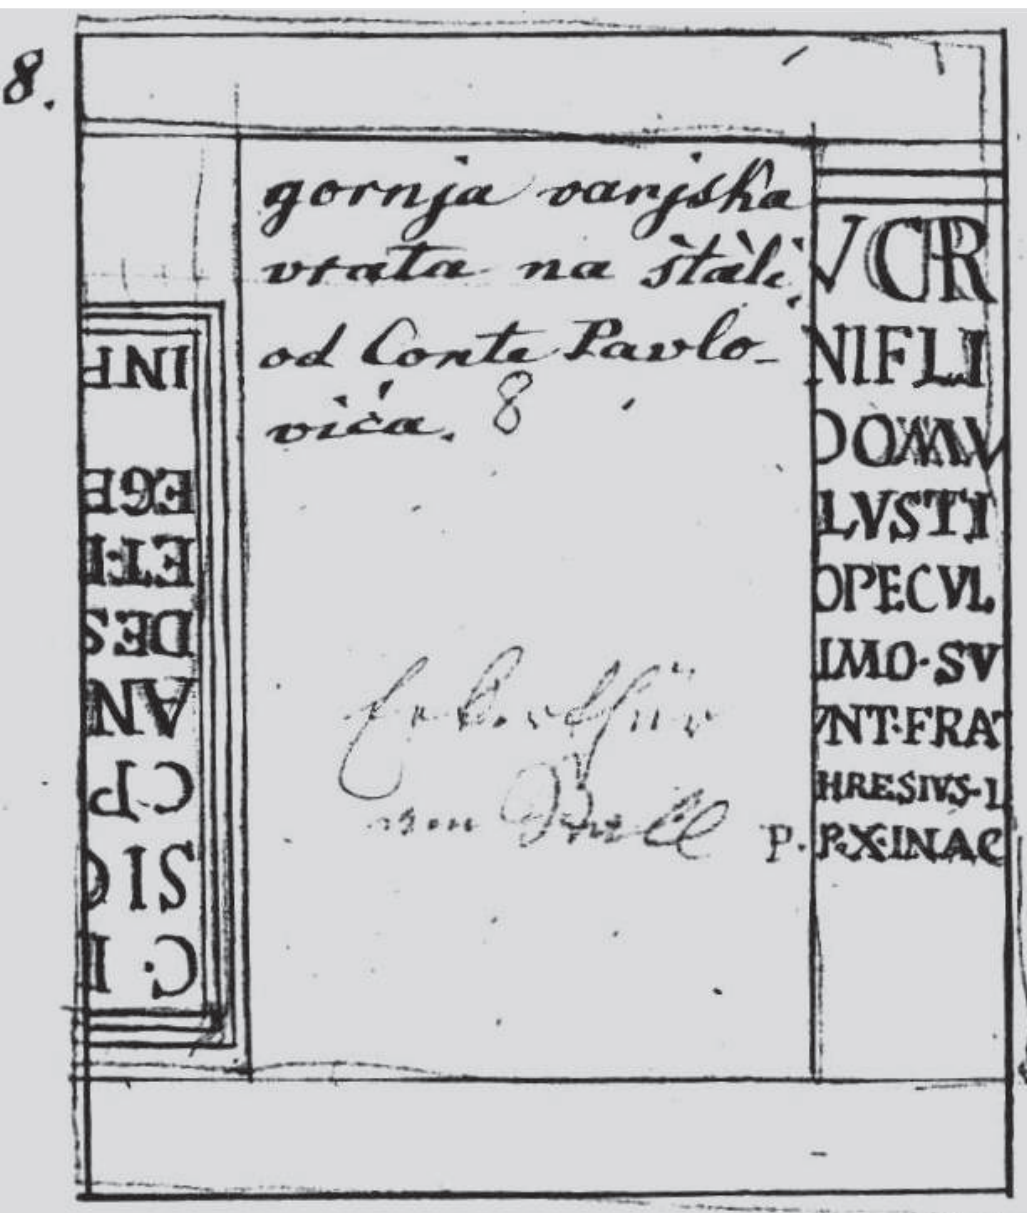 8.
gornja vanjska
vrata na štali,
od Conte Pavlo-
vića. 8
C·I
SIC
CP
AN
DES
ETI
EGE
INF
VCR
NIFLI
DOMV
LVSTI
OPECVL
IMO·SV
VNT·FRAT
HRESIVS·L
P·P·X·INAC